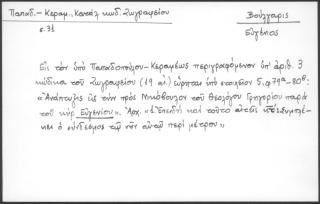 Παπαδ.-Κεραμ., Κατάλ. κωδ. Ζωγραφείου
σ. 31
Βούλγαρις
Εὐγένιος
Εἰς τὸν ὑπὸ Παπαδοπούλου-Κεραμέως περιγραφόμενον ὑπ' ἀριθ. 3
κώδικα τοῦ Ζωγραφείου (19 αἰ.) εὕρηται ὑπὸ στοιχεῖον 5, φ 79α-80β:
"Ἀνάπτυξις εἰς τὴν πρὸς Νικόβουλον τοῦ Θεολόγου Γρηγορίου παρὰ
τοῦ κὺρ Εὐγενίου". Ἀρχ. "Ἐπειδὴ καὶ τοῦτο
ὁ σύνδεσμος τῷ περὶ μέτρου"